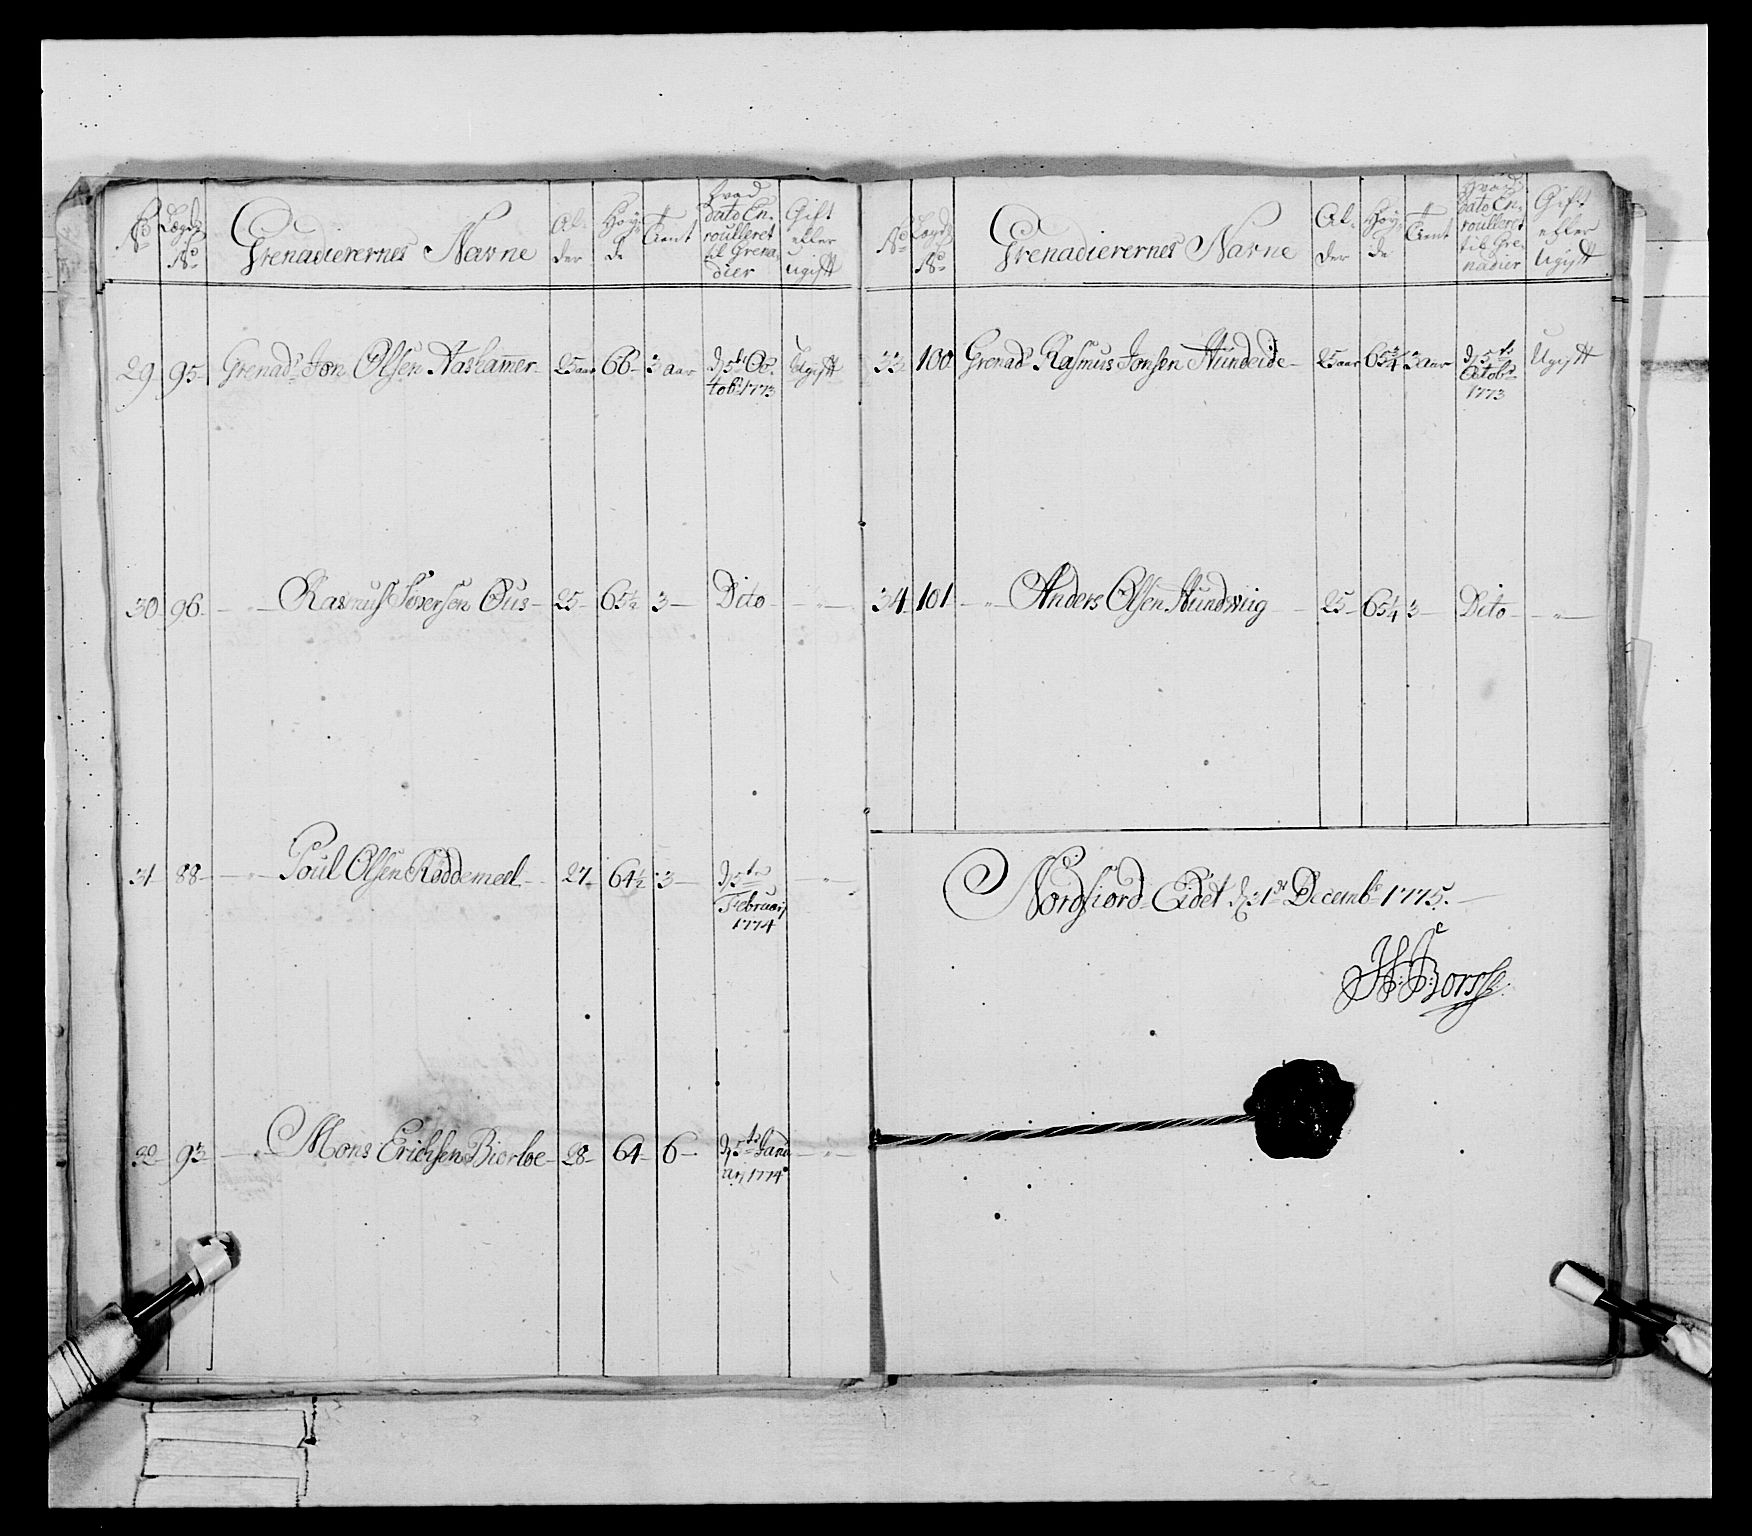 No Lægds No Grenadierernes Navne Al-der Høy-de Tient Hvad dato En-roulleret til Grena-dier Gift eller Ugift
29 95 Grenadr Jon Olsen Aaskammer 25 aar 66 3 aar d 5te Oc-tobr 1773 Ugift
30 96 - " - Rasmus Siversen Ous 25 65½ 3 Dito - " -
31 88 - " - Poul Olsen Røddemeel 27 64½ 3 d 5te Februarj 1774 - " -
32 93 - " - Mons Erichsen Biørloe 28 64 6 d 5te Janu-arj 1774 - " -
No Lægds No Grenadierernes Navne Al-der Høy-de Tient Hvad dato En-roulleret til Gre-nadier Gift eller Ugift
33 100 Grenadr Rasmus Jonsen Hundeide 25 aar 65¾ 3 aar d 5te Octobr 1773 Ugift
34 101 - " - Anders Olsen Hundwiig 25 65¼ 3 Dito - " -
Nordfiord Eidet d 31te Decembr 1775.